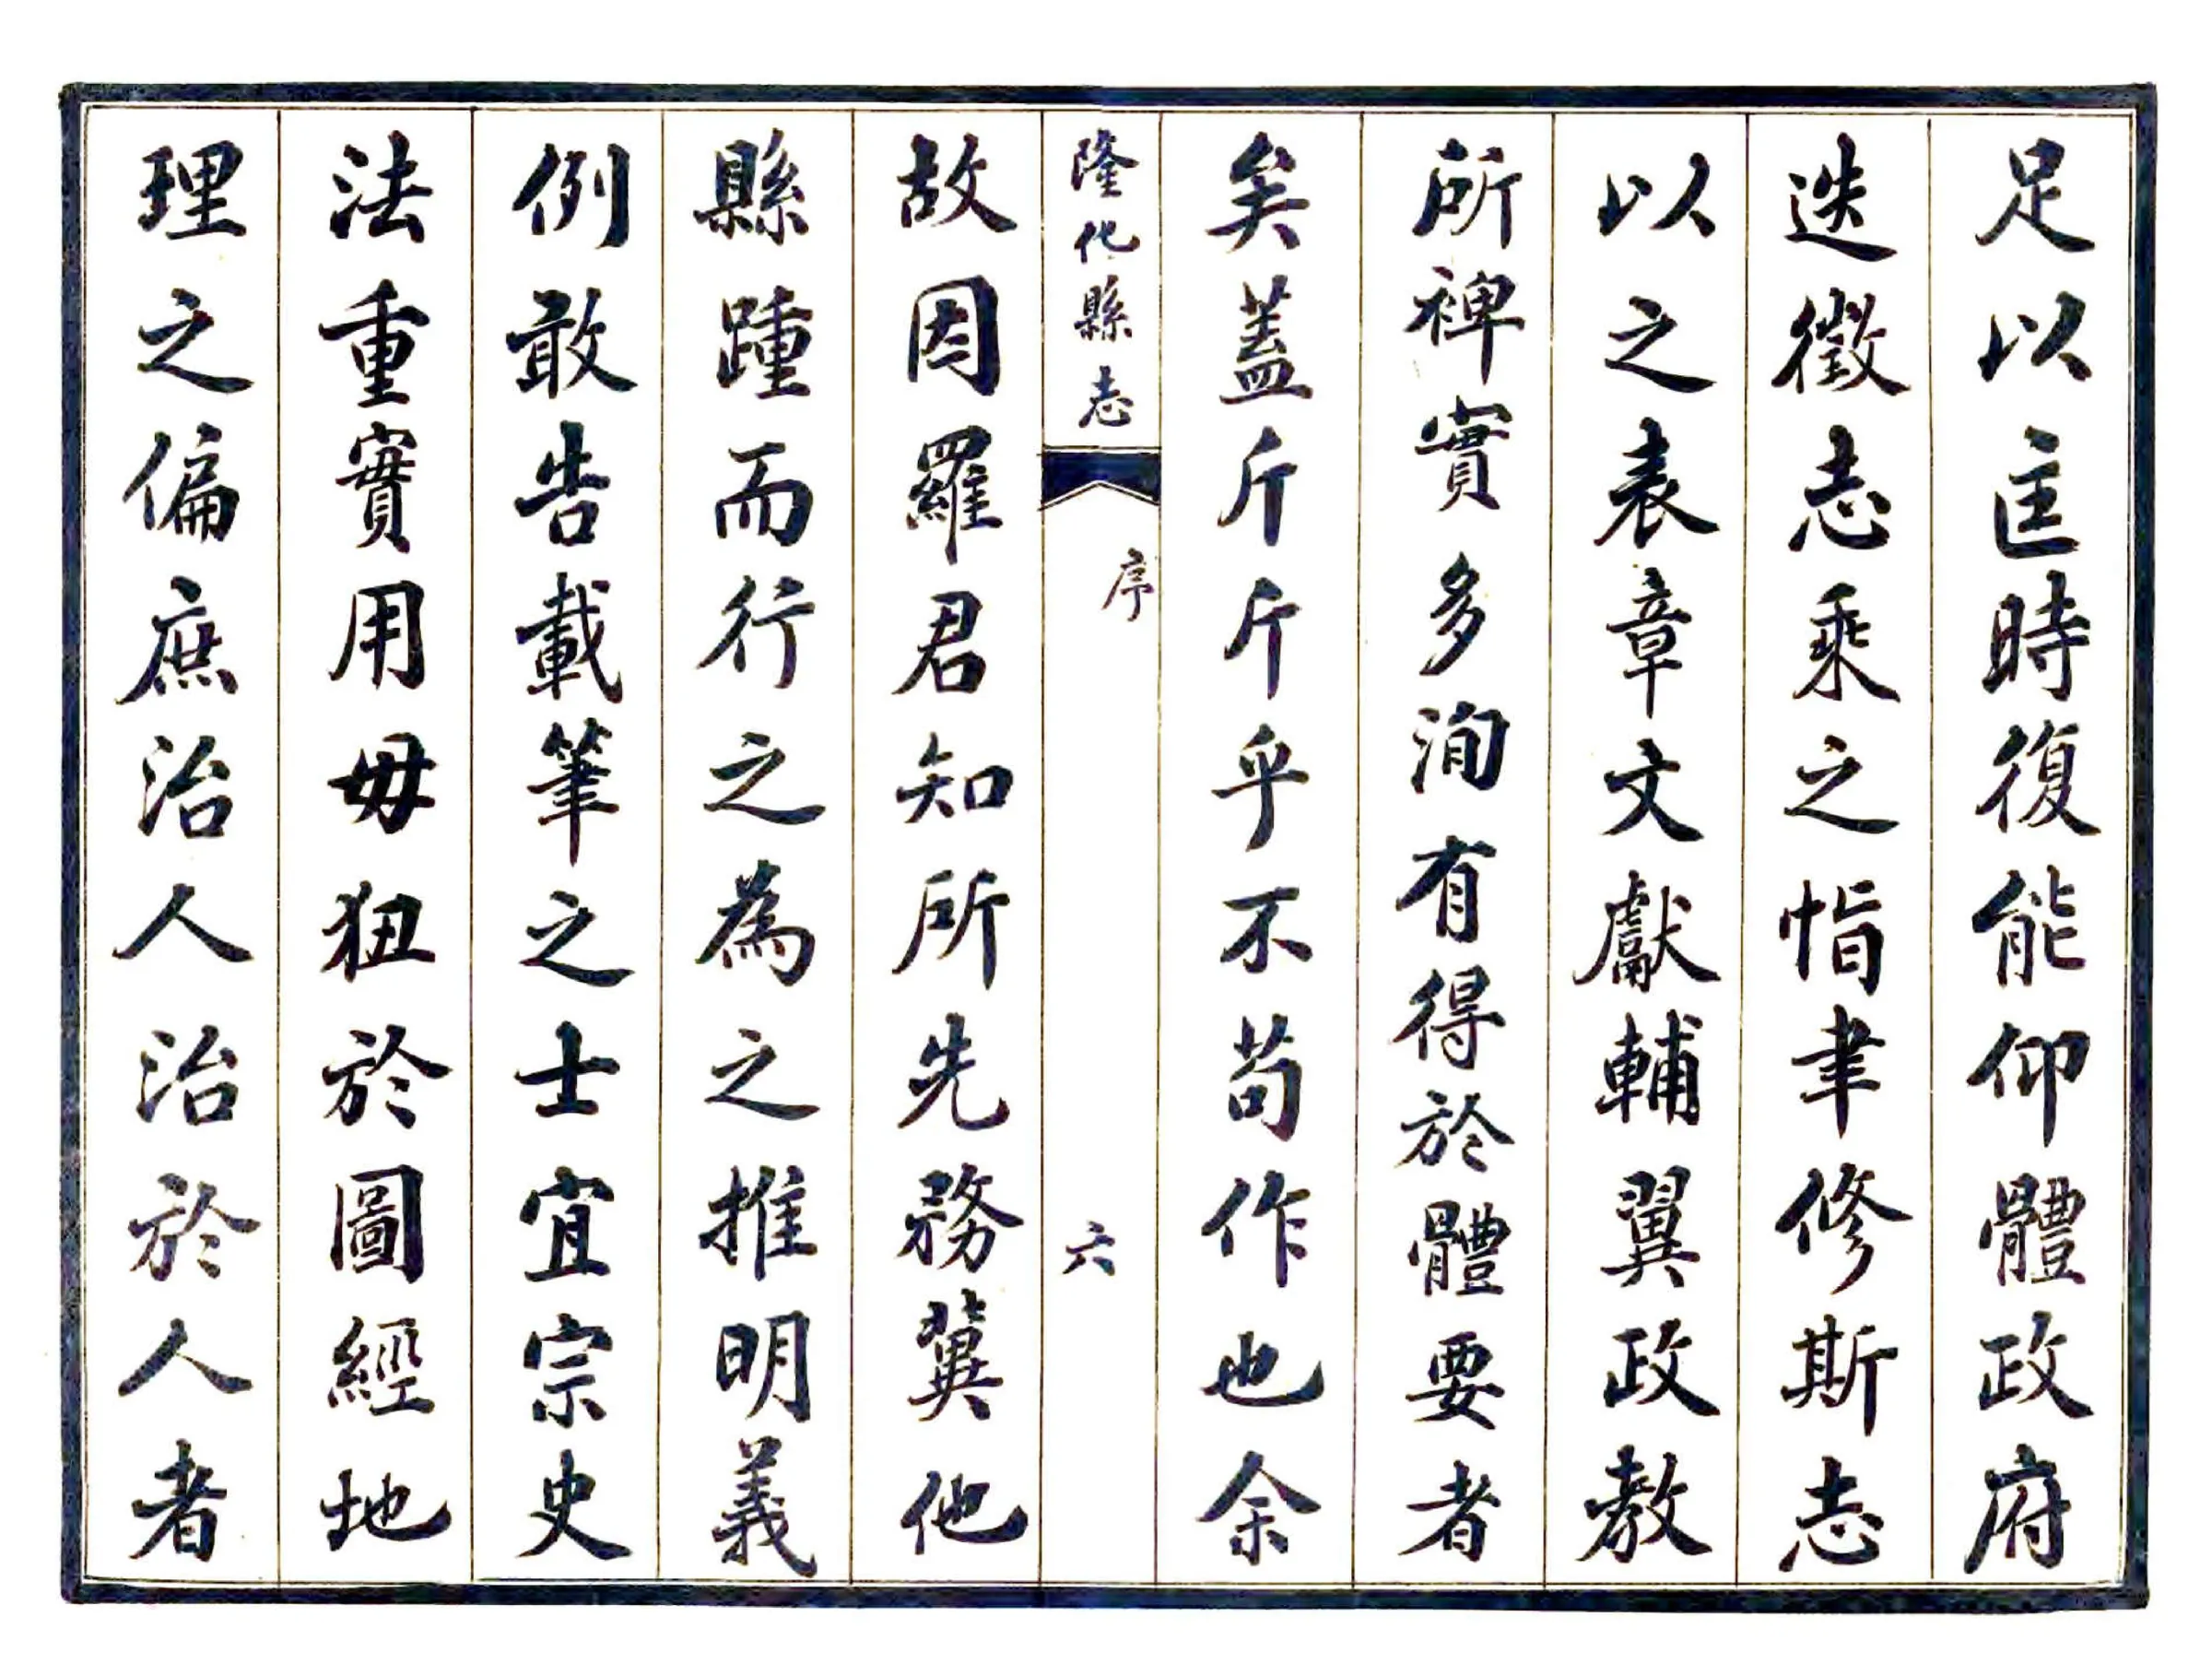 足以匡時復能仰體政府
迭徵志乘之恉聿修斯志
以之表章文獻輔翼政教
所裨實多洵有得於體要者
矣蓋斤斤乎不苟作也余
隆化縣志
序
六
故因羅君知所先務冀他
縣踵而行之為之推明義
例敢告載筆之士宜宗史
法重實用毋狃於圖經地
理之偏庶治人治於人者